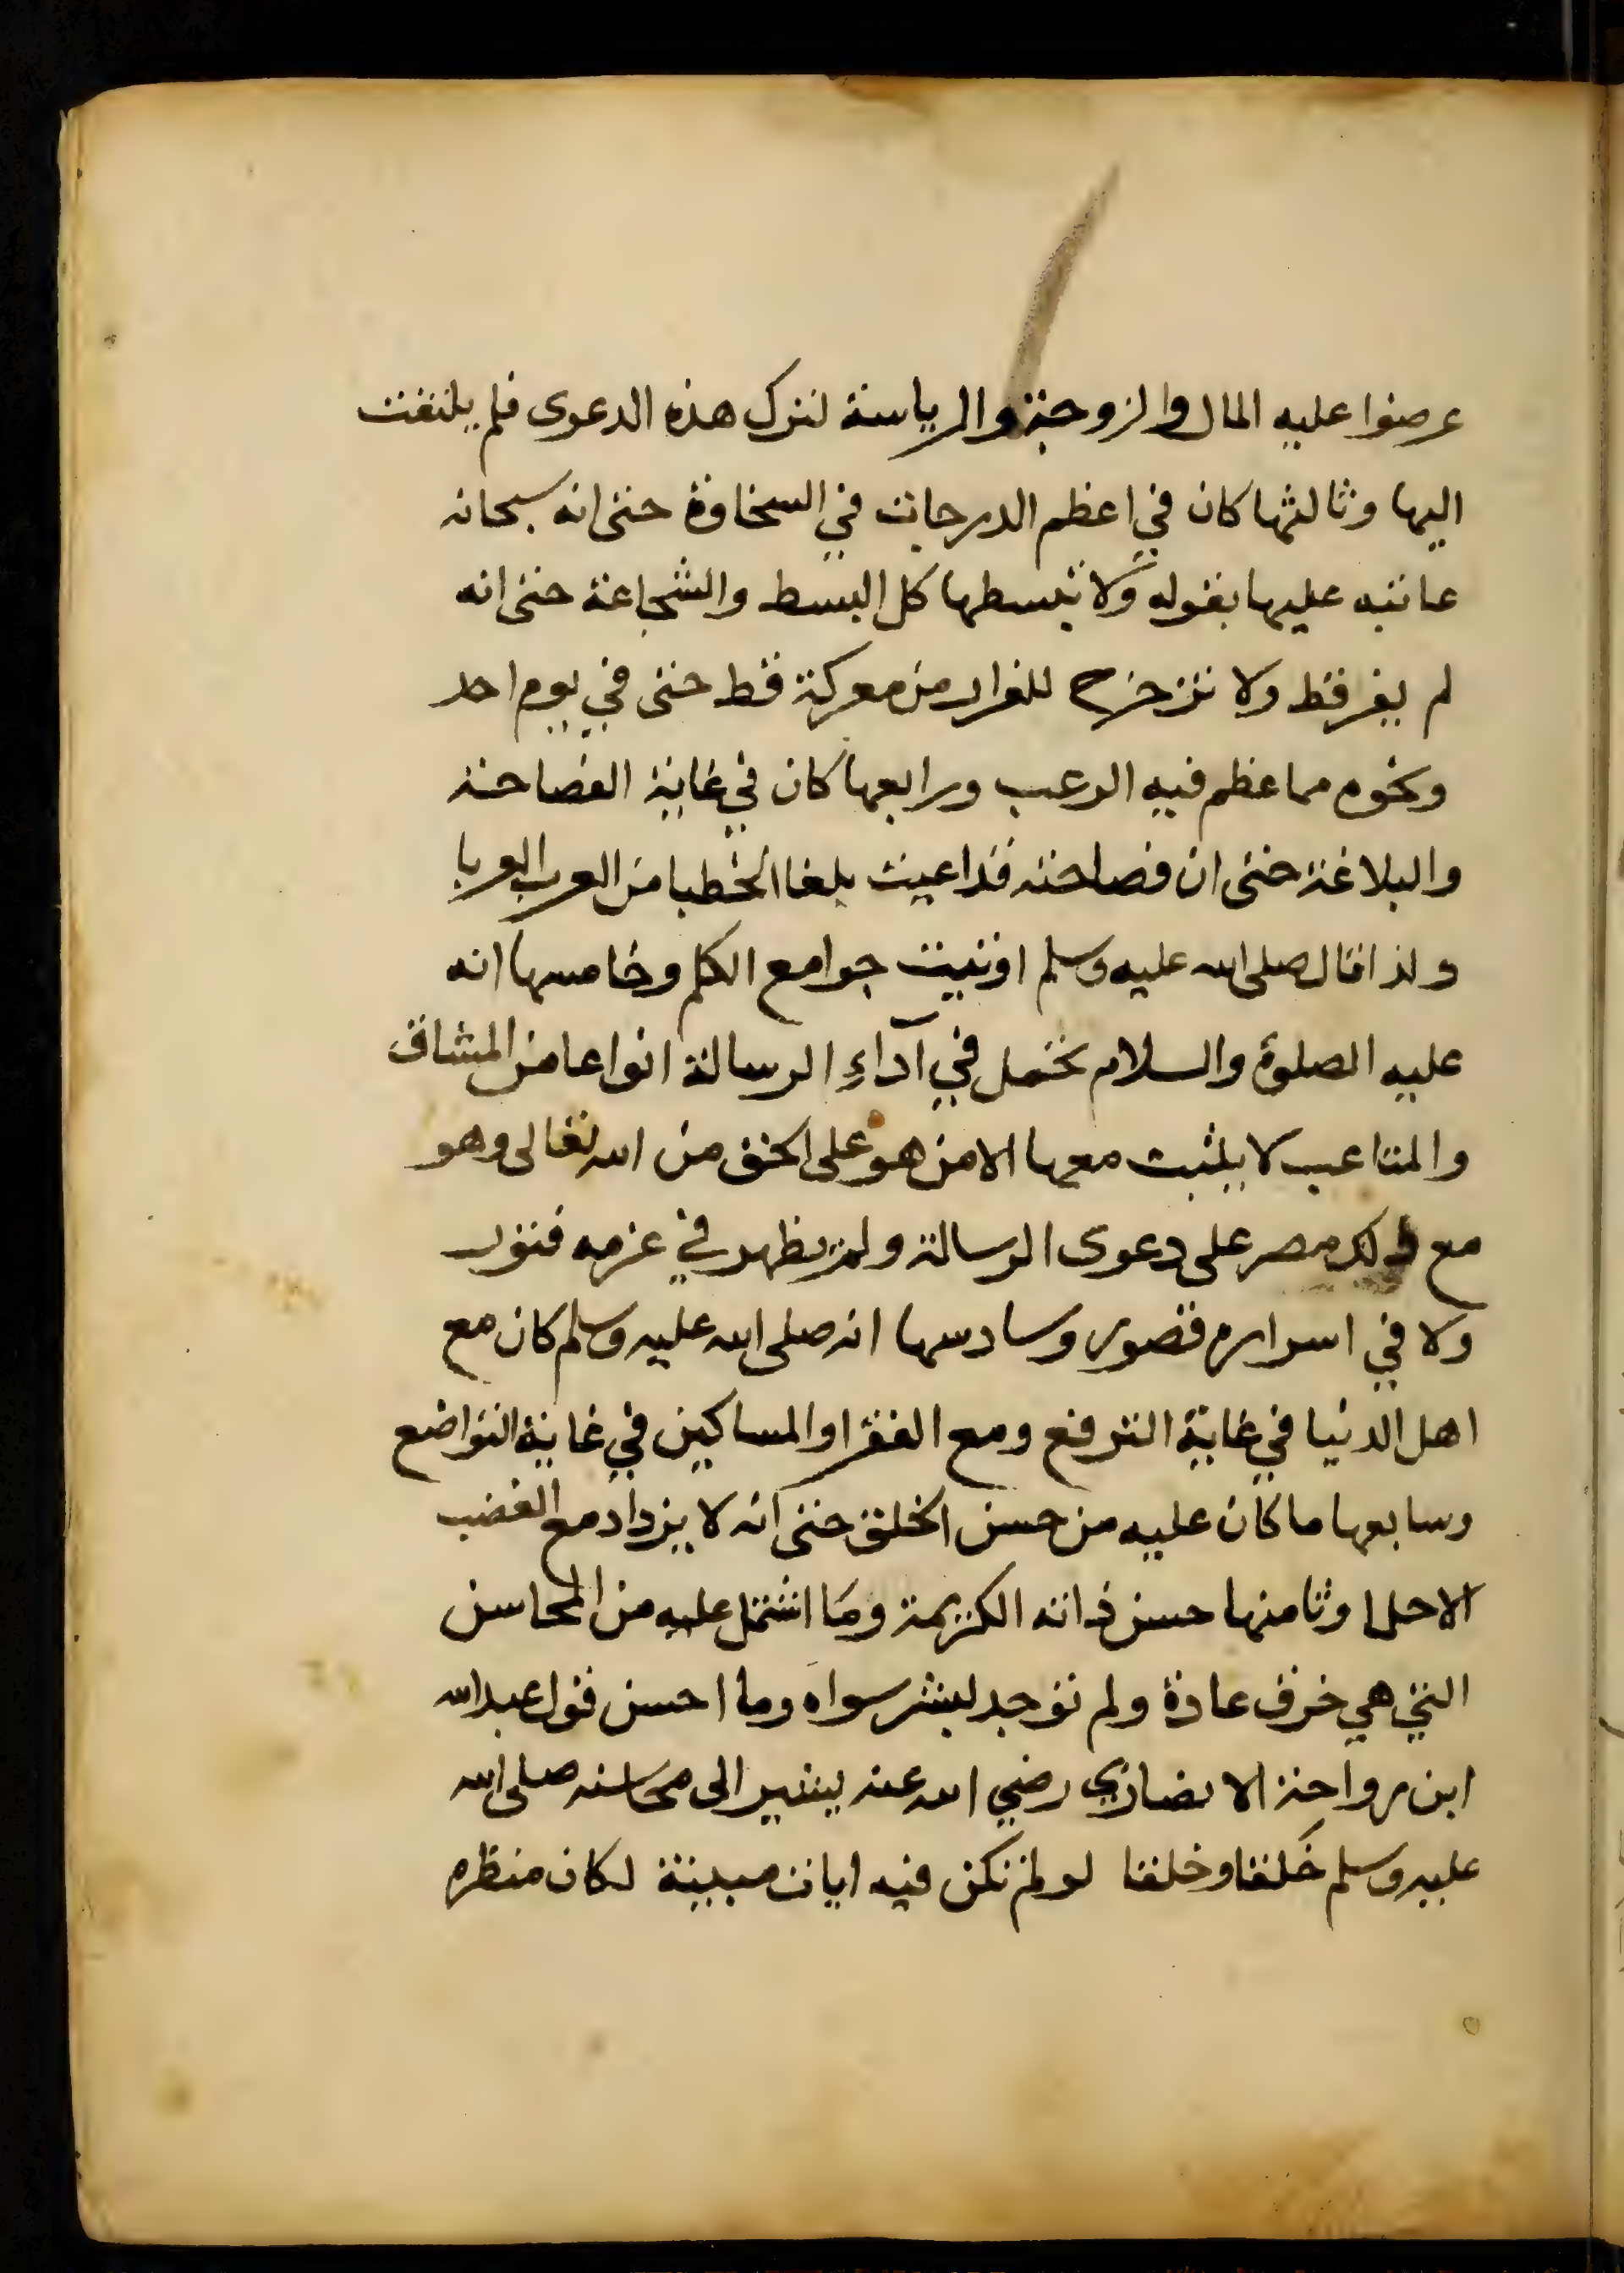 عرضوا عليه المال والزوجة والرياسة لترك هذه الدعوى فلم يلتفت
اليها وثالثها كان في اعظم الدرجات في السخاوة حتى انه سبحانه
عاتبه عليها بقوله ولا تبسطها كل البسط والشجاعة حتى انه
لم يفر قط ولا تزحزح للفرار من معركة قط حتى في يوم احد
ونحوه مما عظم فيه الرعب ورابعها كان في غاية الفصاحة
والبلاغة حتى ان فصاحته قد اعيت بلغا الخطبا من العرب العربا
ولذا قال صلى الله عليه وسلم اوتيت جوامع الكلم وخامسها انه
عليه الصلوة والسلام تحمل في آداءِ الرسالة انواعا من المشاق
والمتاعب لا يثبت معها الا من هو على الحق من الله تعالى وهو
مع ذلك مصر على دعوى الرسالة ولم يظهر في عزمه فتور
ولا في اسراره قصور وسادسها انه صلى الله عليه وسلم كان مع
اهل الدنيا في غاية الترفع ومع الفقرا والمساكين في غاية التواضع
وسابعها ما كان عليه من حسن الخلق حتى انه لا يزداد مع الغضب
الا حلما وثامنها حسن ذاته الكريمة وما اشتمل عليه من المحاسن
التي هي خرق عادة ولم توجد لبشر سواه وما احسن قول عبد الله
ابن رواحة الانصاري رضي الله عنه يشير الى محاسنه صلى الله
عليه وسلم خَلقا وخلقا لو لم تكن فيه ايات مبينة لكان منظره